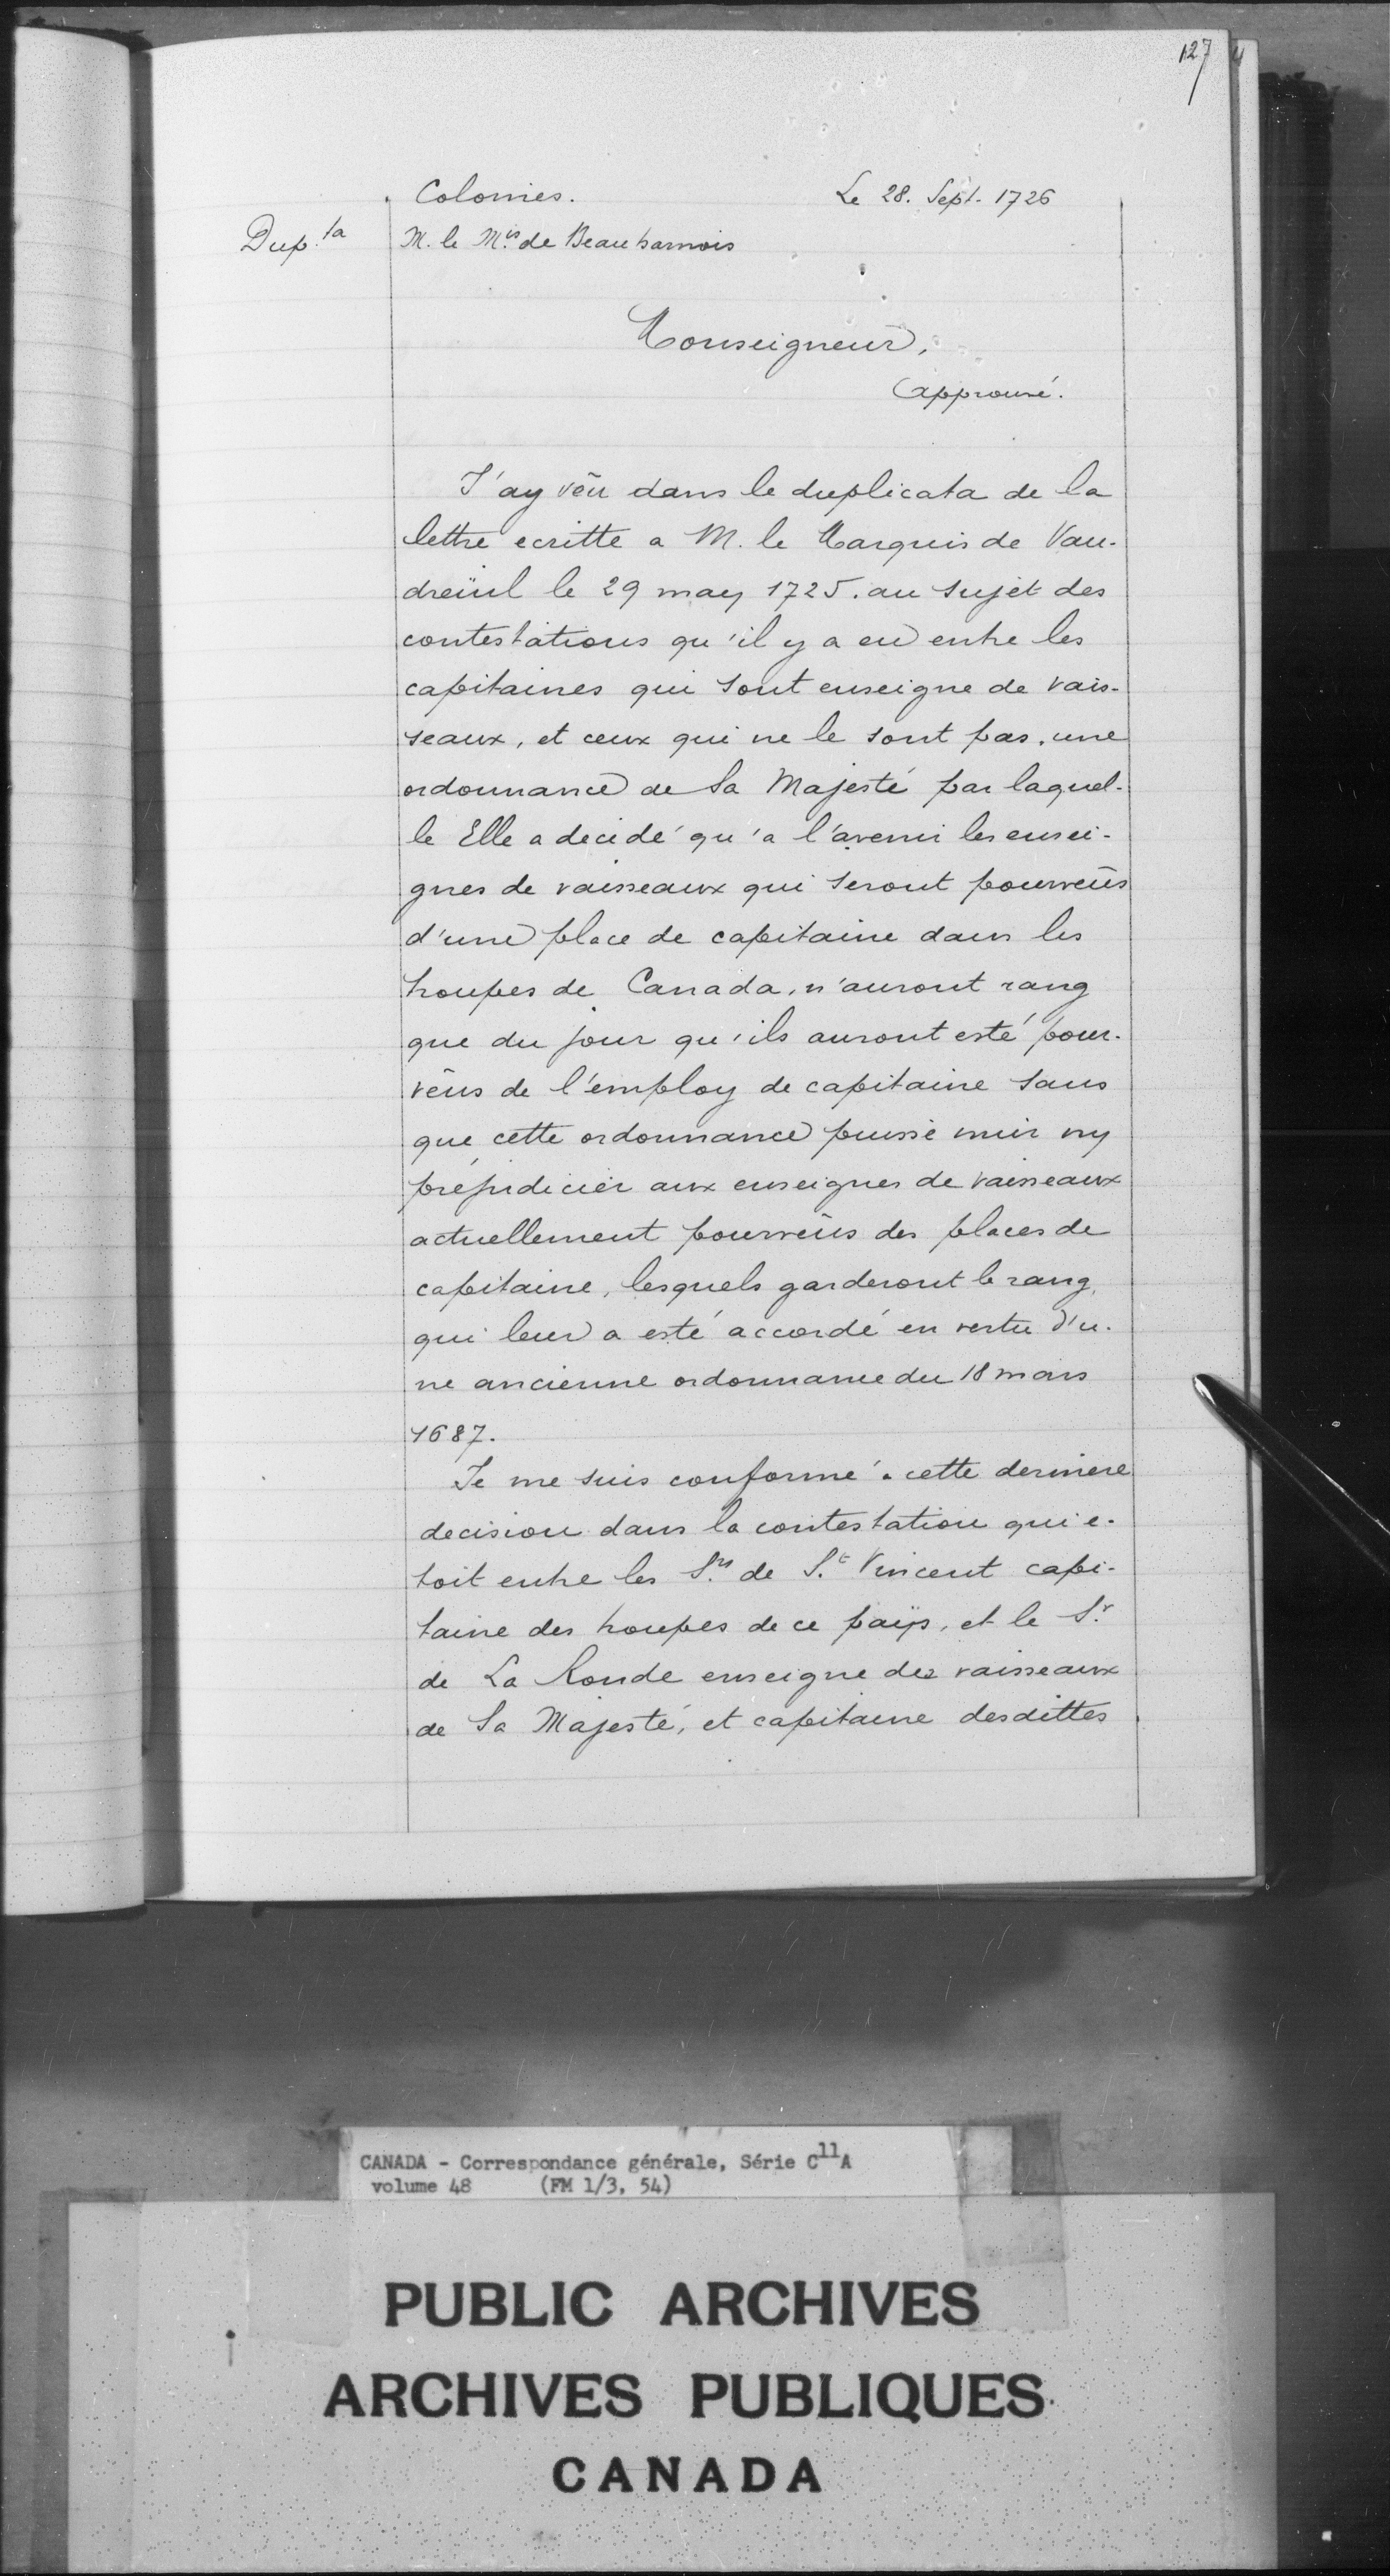 127
Colonies. Le 28. Sept. 1726
Dup.ta M. le M.is de Beauharnois
Monseigneur,
approuvé.
J'ay vêu dans le duplicata de la
lettre ecritte a M. le Marquis de Vau-
dreüil le 29 may 1725. au sujet des
contestations qu'il y a eu entre les
capitaines qui sont enseigne de vais-
seaux, et ceux qui ne le sont pas, une
ordonnance de Sa Majesté par laquel-
le Elle a decidé qu'a l'avenir les ensei-
gnes de vaisseaux qui seront pourveûs
d'une place de capitaine dans les
troupes de Canada, n'auront rang
que du jour qu'ils auront esté pour-
vêus de l'employ de capitaine sans
que cette ordonnance puisse nuir ny
préjudicier aux enseignes de vaisseaux
actuellement pourveûs des places de
capitaine, lesquels garderont le rang
qui leur a esté accordé en vertu d'u-
ne ancienne ordonnance du 18 mars
1687.
Je me suis conformé a cette derniere
decision dans la contestation qui e-
toit entre les S.rs de S.t Vincent capi-
taine des troupes de ce païs, et le S.r
de La Ronde enseigne des vaisseaux
de Sa Majesté, et capitaine desdittes
CANADA - Correspondance générale, Série C11A
volume 48 (FM 1/3, 54)
PUBLIC ARCHIVES
ARCHIVES PUBLIQUES
CANADA